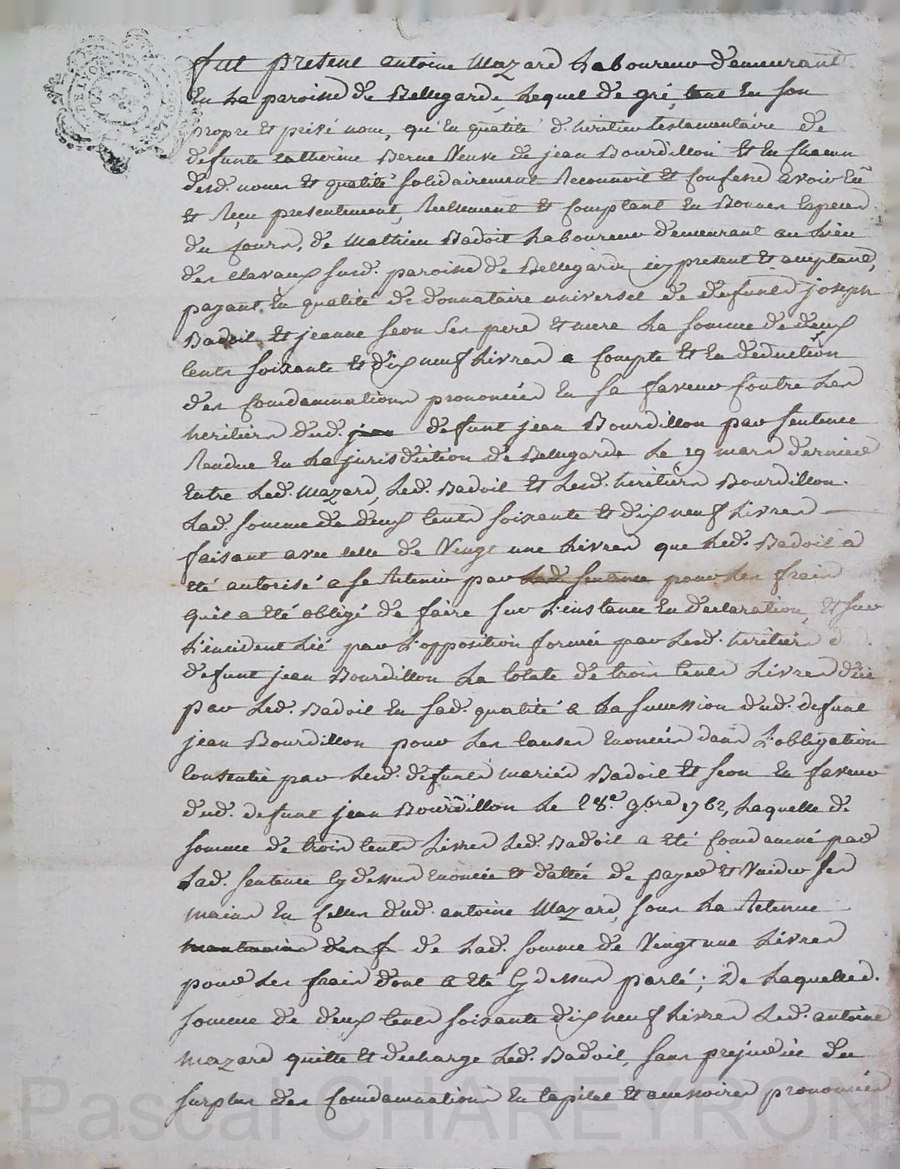 fut présent antoine Mazard Laboureur demeurant
En La paroisse de Bellegarde, Lequel de gré, tant En son
propre Et privé nom, qu'En qualité d'heritier testamentaire de
defunte Catherine Berne Veuve de jean Bourdillon Et En chacun
desd. noms Et qualité solidairement Reconnoit Et Confesse avoir Eu
Et Reçu presentement, Réellement Et Comptant En Bonnes Especes
du Cours, de Mathieu Badoit Laboureur demeurant au Lieu
des Clavaux susd. paroisse de Bellegarde icy present Et acceptant,
payant En qualité de donnataire universel de defunts joseph
Badoil Et jeanne Seon Ses pere Et mere La somme de deux
Cents soixante Et dix neuf Livres a Compte Et En deduction
des Condamnations prononcées En Sa faveur Contre Les
heritiers dud. defunt jean Bourdillon par sentence
Rendue En La jurisdiction de Bellegarde Le 19 mars dernier
Entre Led. Mazard, Led. Badoil Et Lesd. heritiers Bourdillon.
Lad. somme de deux Cents soixante Et dix neuf Livres
faisant avec Celle de Vingt une Livres que Led. Badoil a
Eté autorisé a se Retenir par Lad. sentence pour Les frais
qu'il a Eté obligé de faire sur L'instance En declaration, Et sur
L'incident Lié par L'opposition formée par Lesd. heritiers
defunt jean Bourdillon La totale de trois Cents Livres
par Led. Badoil En sad. qualité a La succession dud. defunt
jean Bourdillon pour Les Causes Enoncées dans L'obligation
Consentie par Lesd. defunts mariés Badoil Et Seon En faveur
dud. defunt jean Bourdillon Le 28.e 9bre 1762, Laquelle d.
somme de trois Cents Livres Led. Badoil a Eté Condamné par
Lad. Sentence Cy dessus Enoncée Et dattée de payer Et Vuider Ses
mains En Celles dud. antoine Mazard sous La Retenue
de Lad. somme de Vingt une Livres
pour Les frais dont a Eté Cy dessus parlé; De Laquelled.
somme de deux Cents soixante dix neuf Livres Led. antoine
Mazard quitte Et decharge Led. Badoil, sans prejudice du
surplus des Condamnations En Capital Et accessoires prononcées
Pascal CHAREYRON